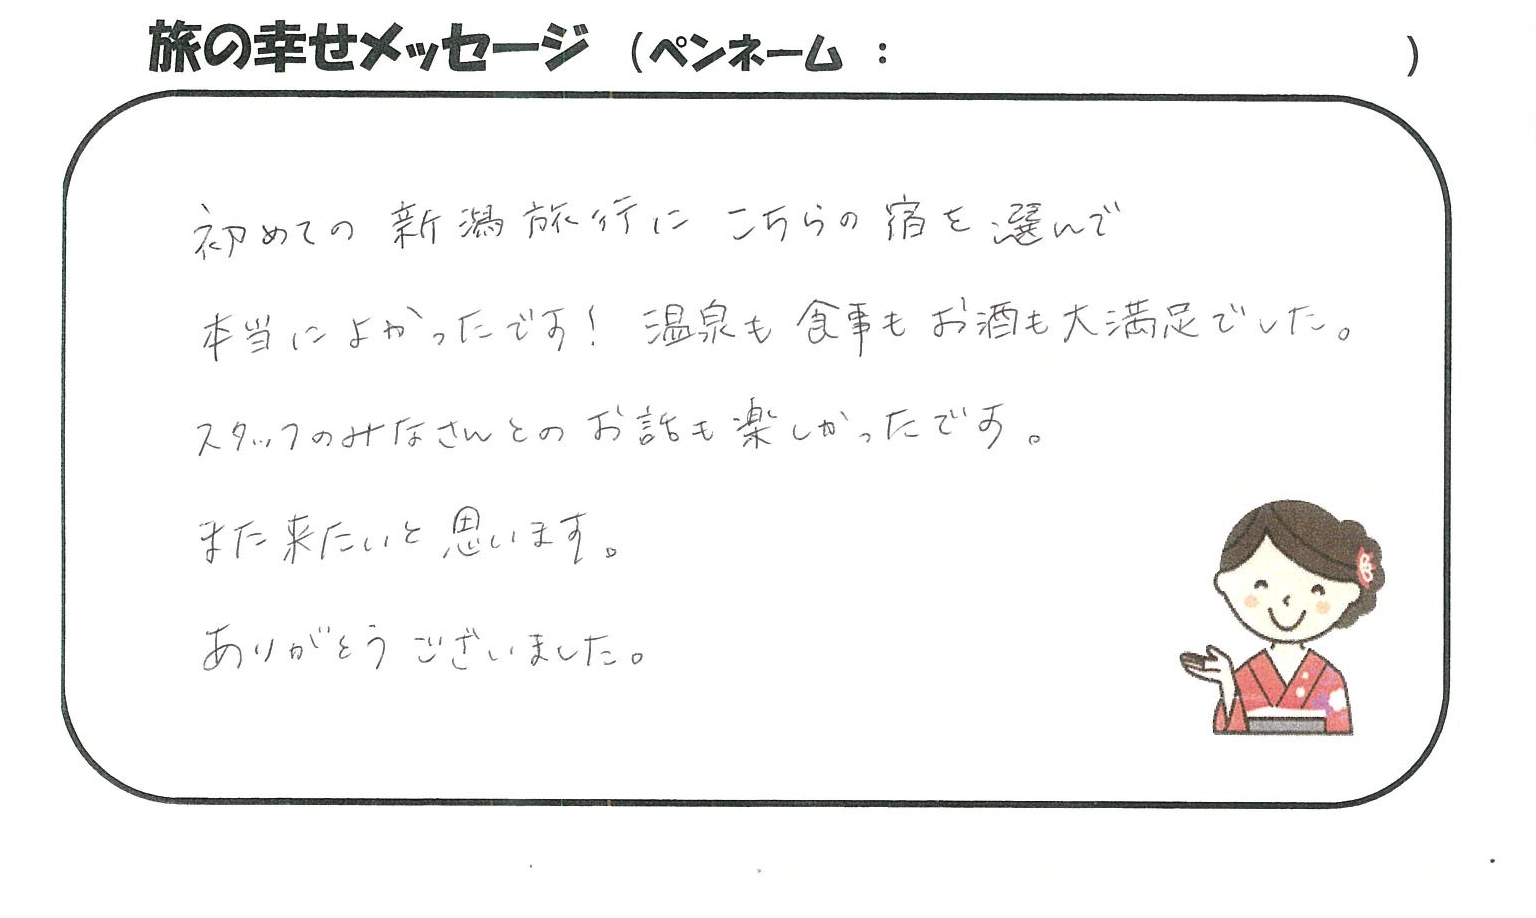 旅の幸せメッセージ (ペンネーム : )
初めての 新潟旅行に こちらの 宿を 選んで
本当に よかったです! 温泉も 食事も お酒も 大満足でした。
スタッフのみなさんとの お話も 楽しかったです。
また 来たいと 思います。
ありがとう ございました。